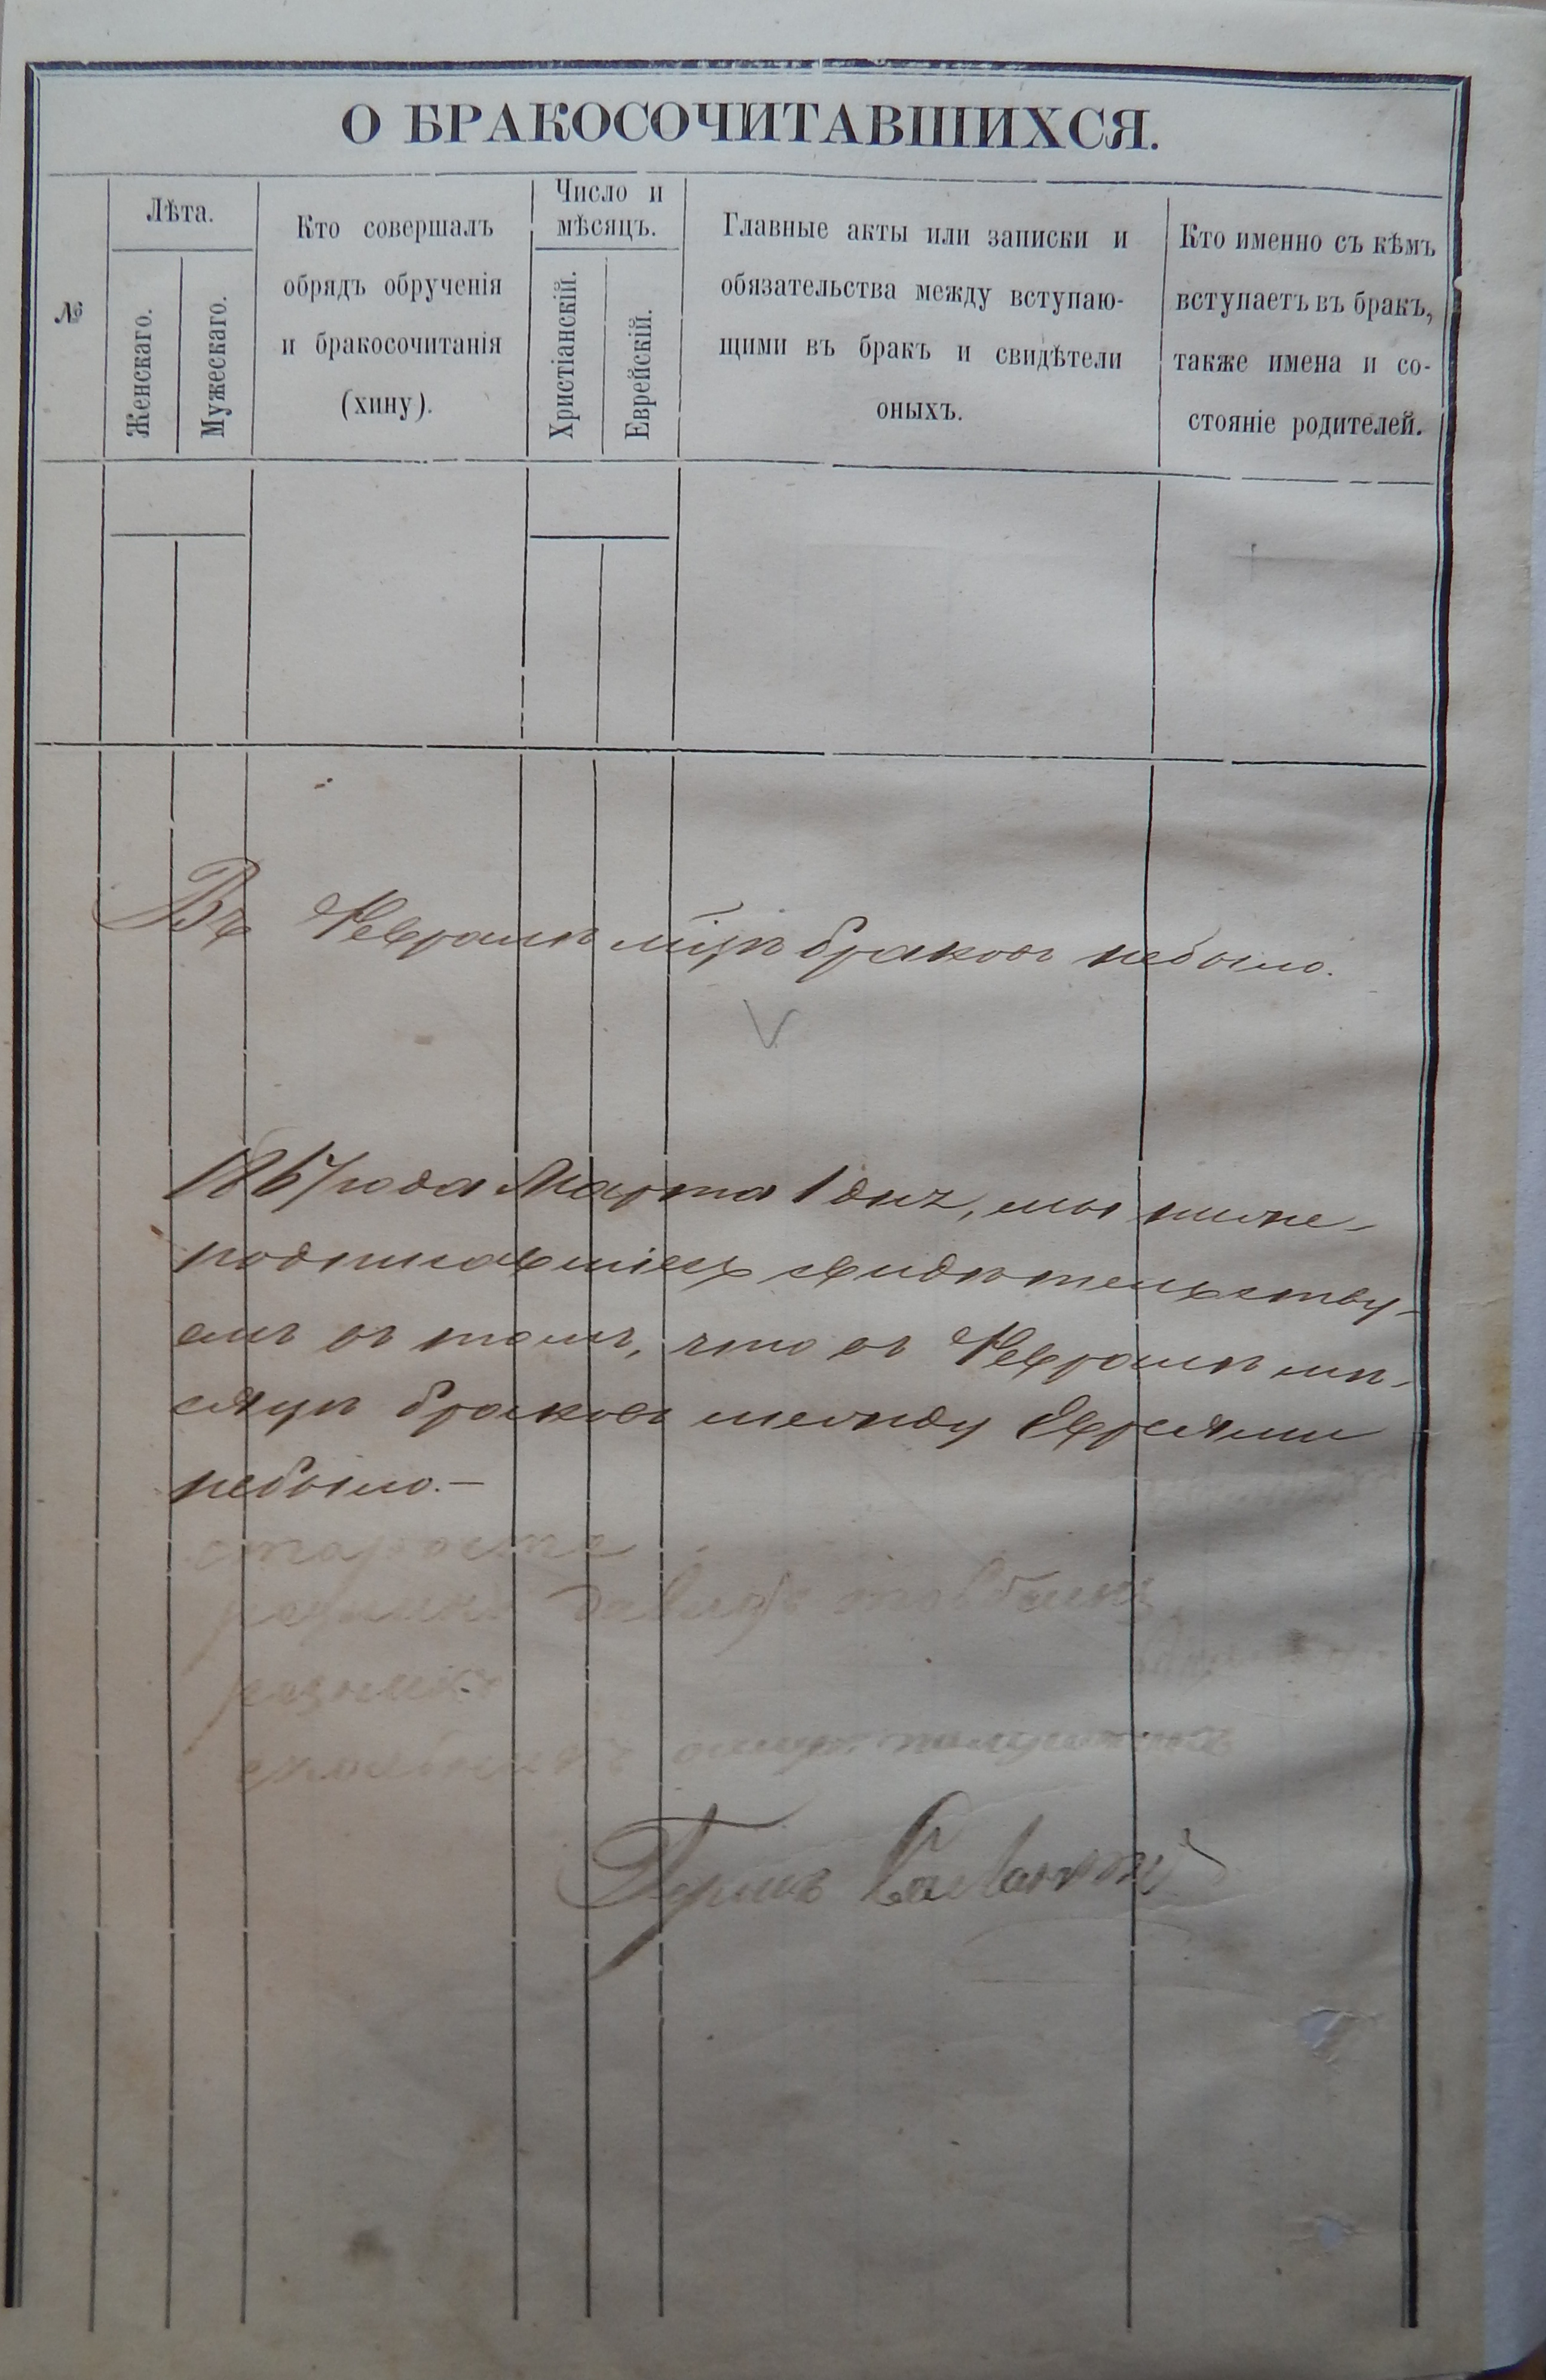 О БРАКОСОЧИТАВШИХСЯ.
№
Лѣта.
Женскаго.
Мужескаго.
Кто совершалъ
обрядъ обрученія
и бракосочитанія
(хину).
Число и
мѣсяцъ.
Христіанскій.
Еврейскій.
Главные акты или записки и
обязательства между вступаю-
щими въ бракъ и свидѣтели
оныхъ.
Кто именно съ кѣмъ
вступаетъ въ бракъ,
также имена и со-
стояніе родителей.
Въ Февралѣ мцѣ браковъ небыло.
1867 года Марта 1 дня, мы ниже-
подписавшіеся свидѣтельству-
емъ въ томъ, что въ Февралѣ мѣ-
сяцѣ браковъ между Евреями
небыло.—
староста